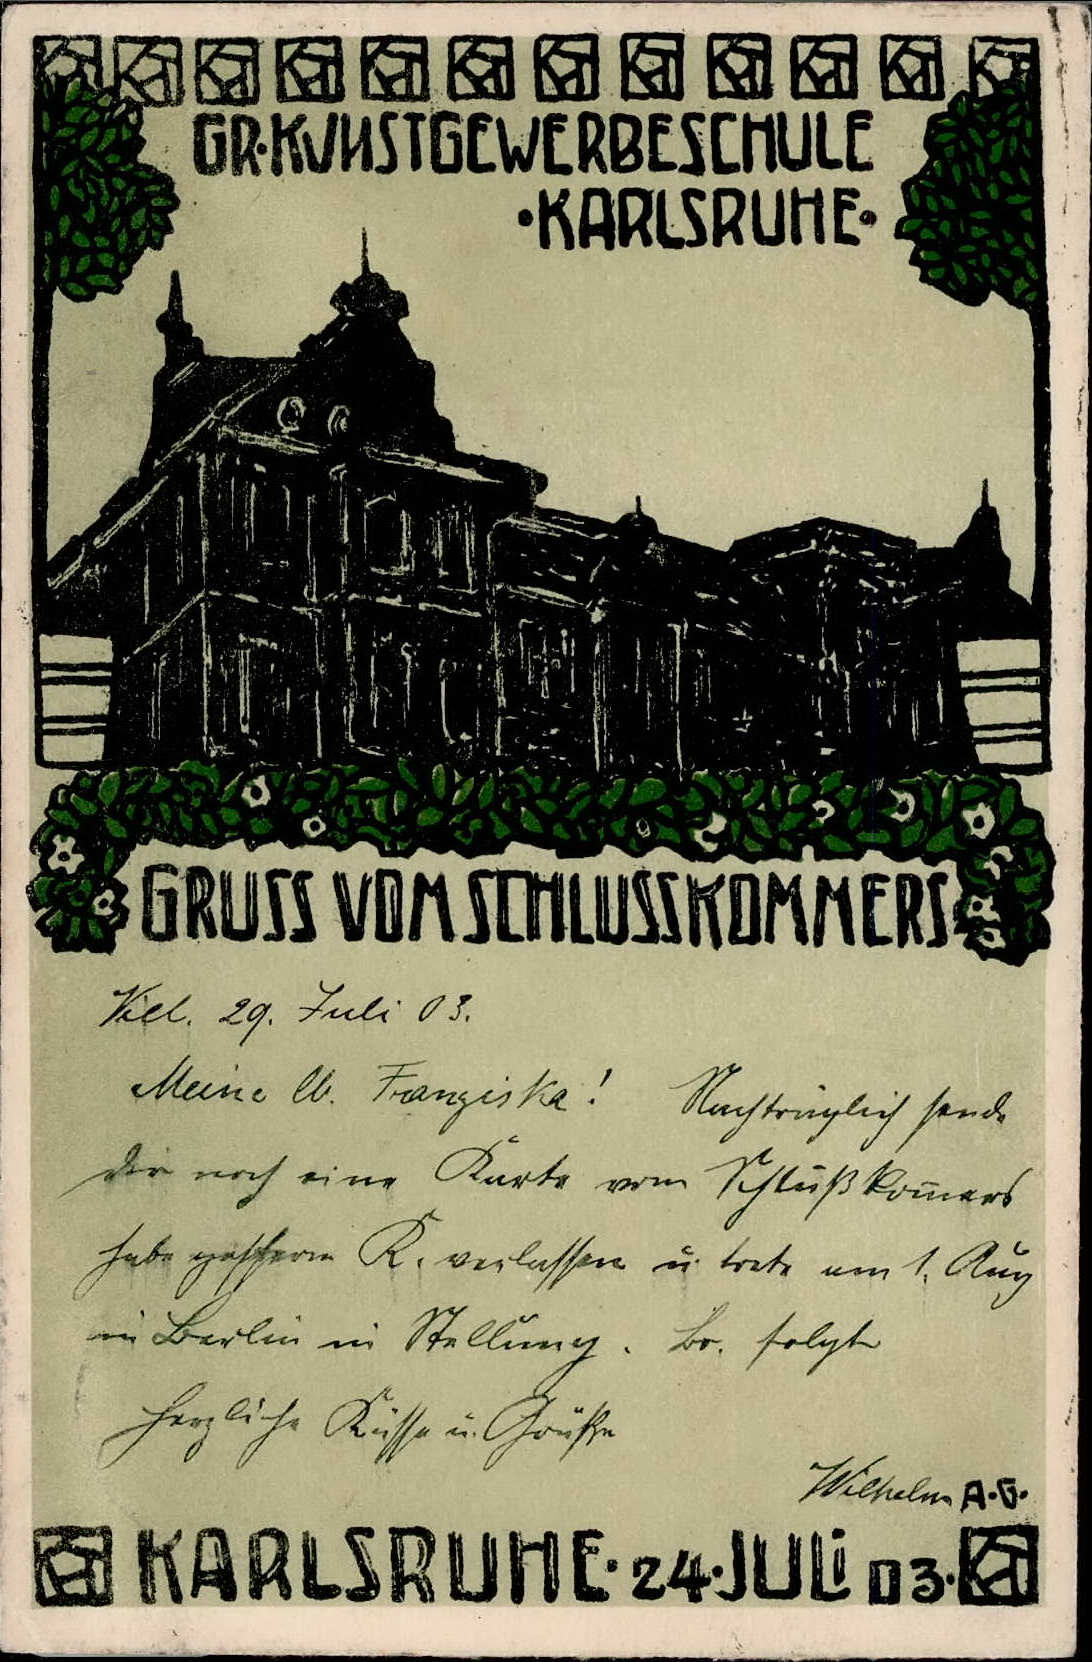 GR·KUNSTGEWERBESCHULE
·KARLSRUHE·
GRUSS VOM SCHLUSSKOMMERS
29. Juli 03.
Meine lb. Franziska! Nachträglich sende
dir noch eine Karte vom Schlußkom̅ers
habe gestern K. verlassen u. trete am 1. Aug
in Berlin in Stellung. Br. folgt
Herzliche Küsse u. Grüße
Wilhelm
A·G·
KARLSRUHE·24·JULI 03·